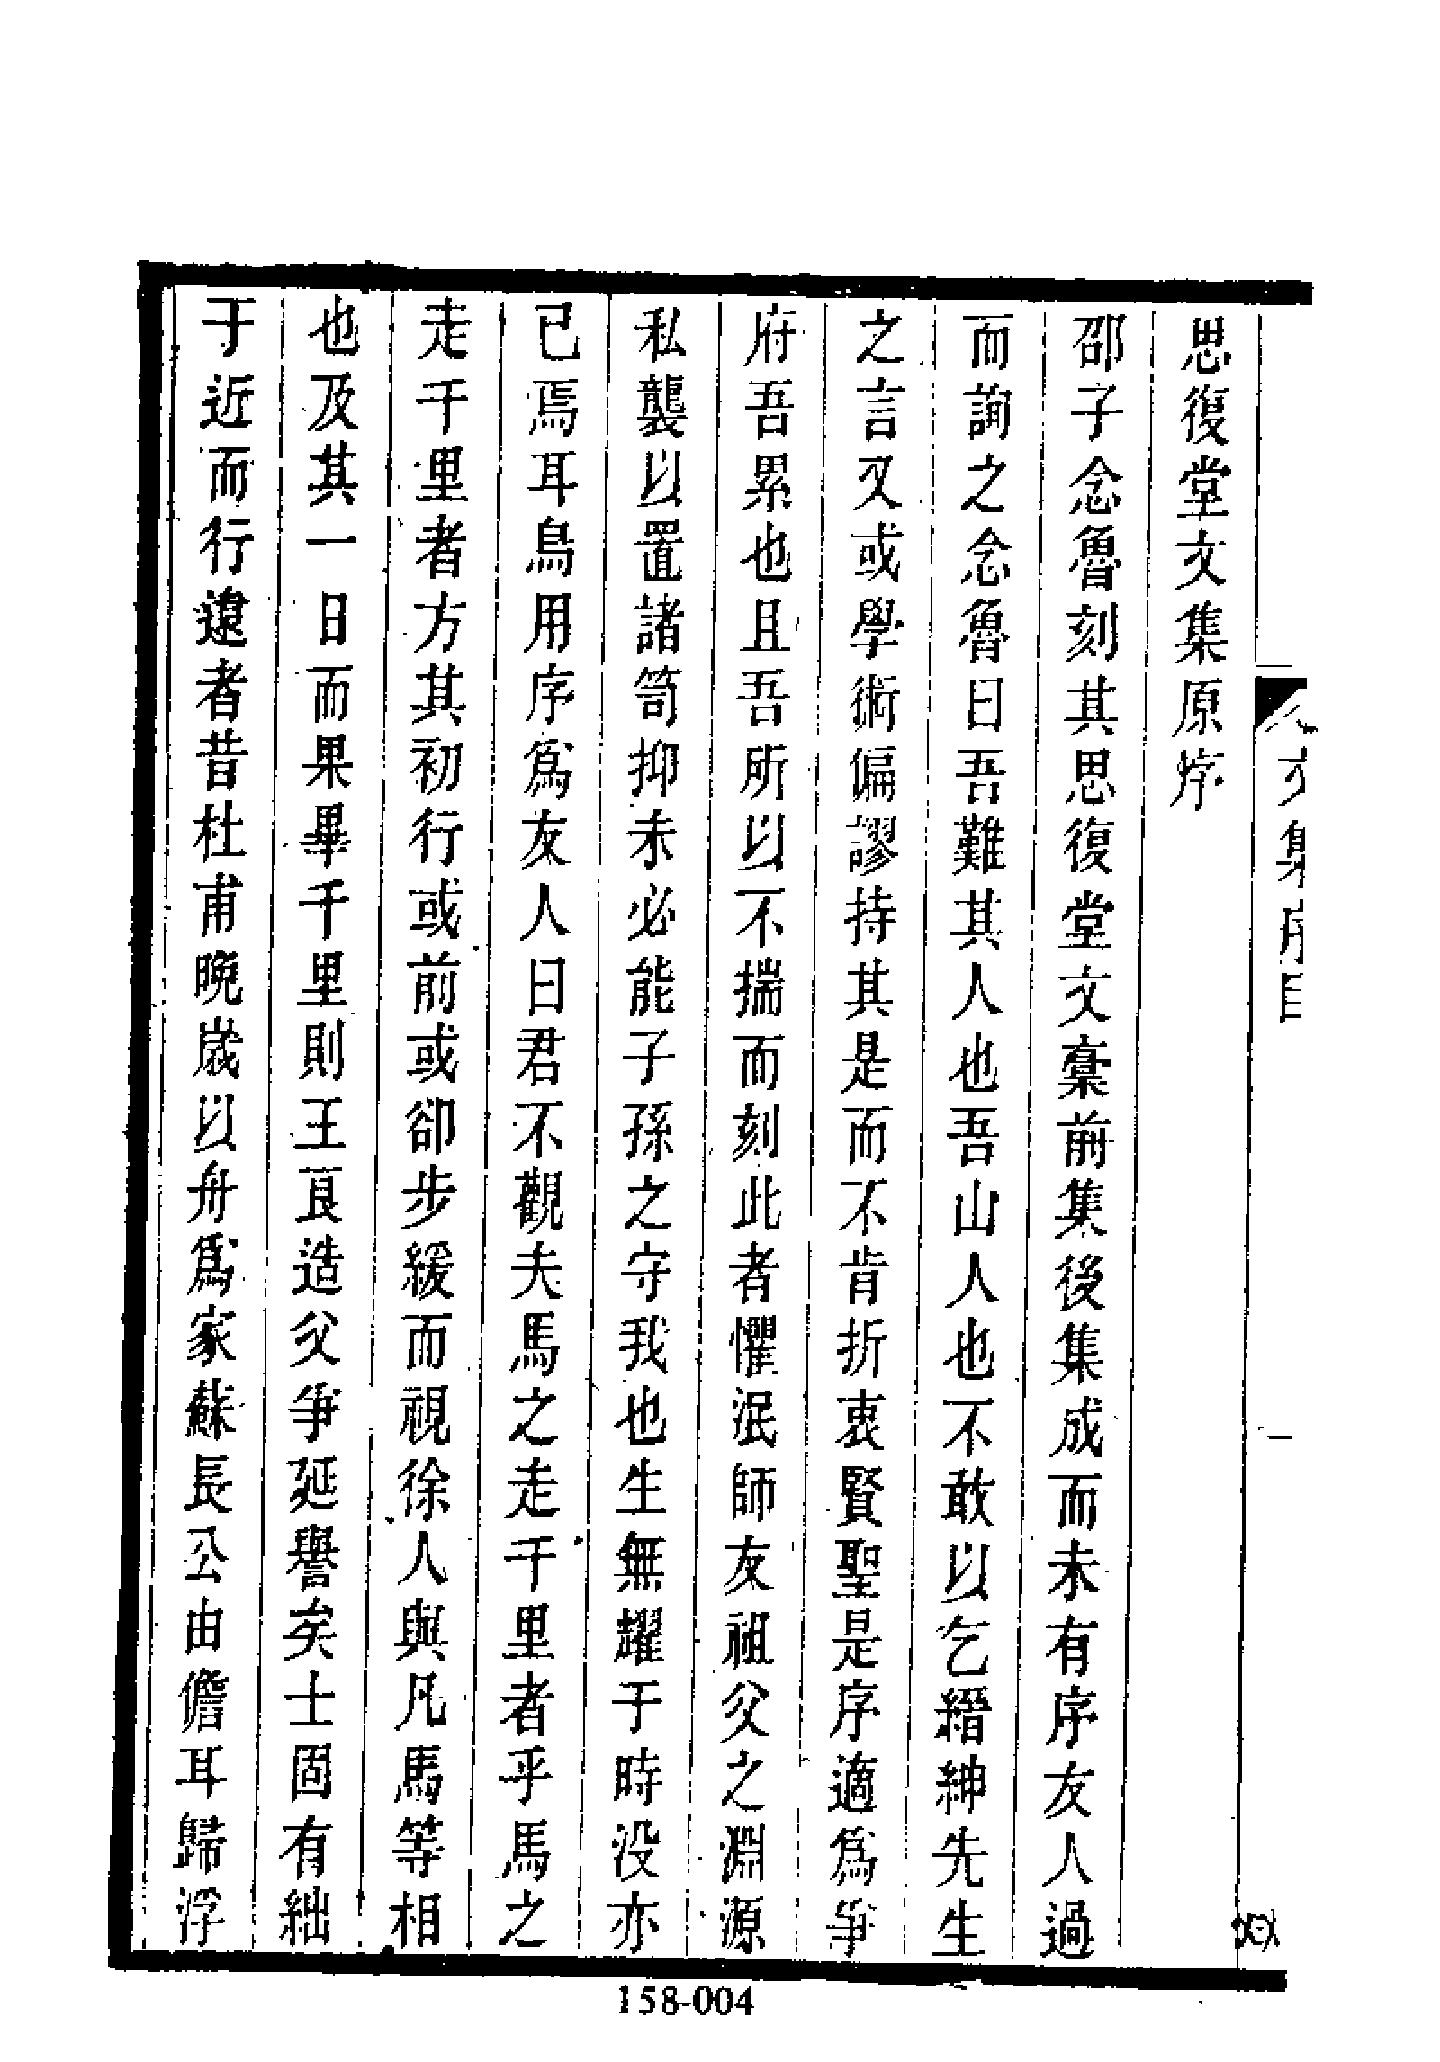 思復堂文集原序
邵子念魯刻其思復堂文稾前集後集成而未有序友人過
而詢之念魯曰吾難其人也吾山人也不敢以乞縉紳先生
之言又或學術偏謬持其是而不肯折衷賢聖是序適爲爭
府吾累也且吾所以不揣而刻此者懼泯師友祖父之淵源
私襲以置諸笥抑未必能子孫之守我也生無耀于時没亦
已焉耳烏用序爲友人曰君不觀夫馬之走千里者乎馬之
走千里者方其初行或前或卻步緩而視徐人與凡馬等相
也及其一日而果畢千里則王良造父爭延譽矣士固有絀
于近而行遠者昔杜甫晚嵗以舟爲家蘇長公由儋耳歸浮
文集序目
一
158-004